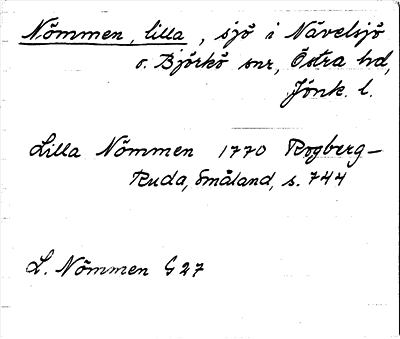 Nömmen, lilla, sjö i Nävelsjö
o. Björkö snr, Östra hd,
Jönk. l.
Lilla Nömmen 1770 Rogberg-
Ruda, Småland, s. 744
L. Nömmen G 27